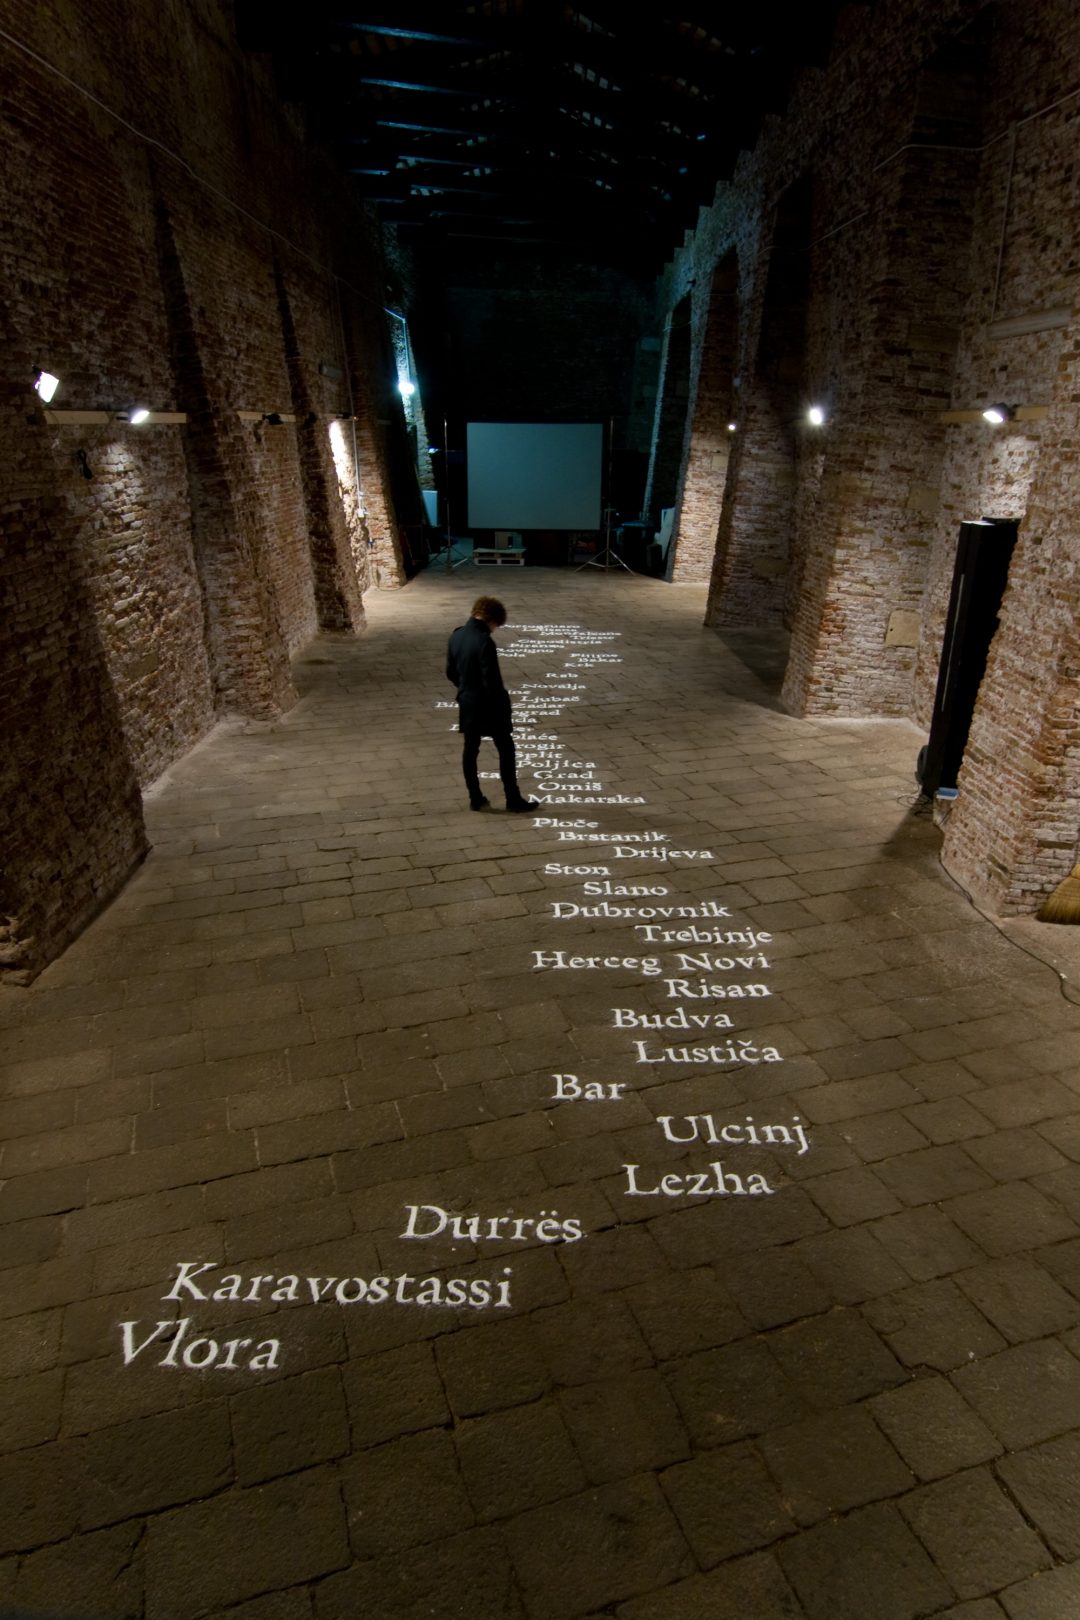 Monfalcone
Trieste
Capodistria
Piranzo
Rovigno
Pola
Fiume
Bakar
Krk
Rab
Novalja
Ljubač
Zadar
Split
Poljica
Grad
Omiš
Makarska
Ploče
Brstanik
Drijeva
Ston
Slano
Dubrovnik
Trebinje
Herceg Novi
Risan
Budva
Lustiča
Bar
Ulcinj
Lezha
Durrës
Karavostassi
Vlora